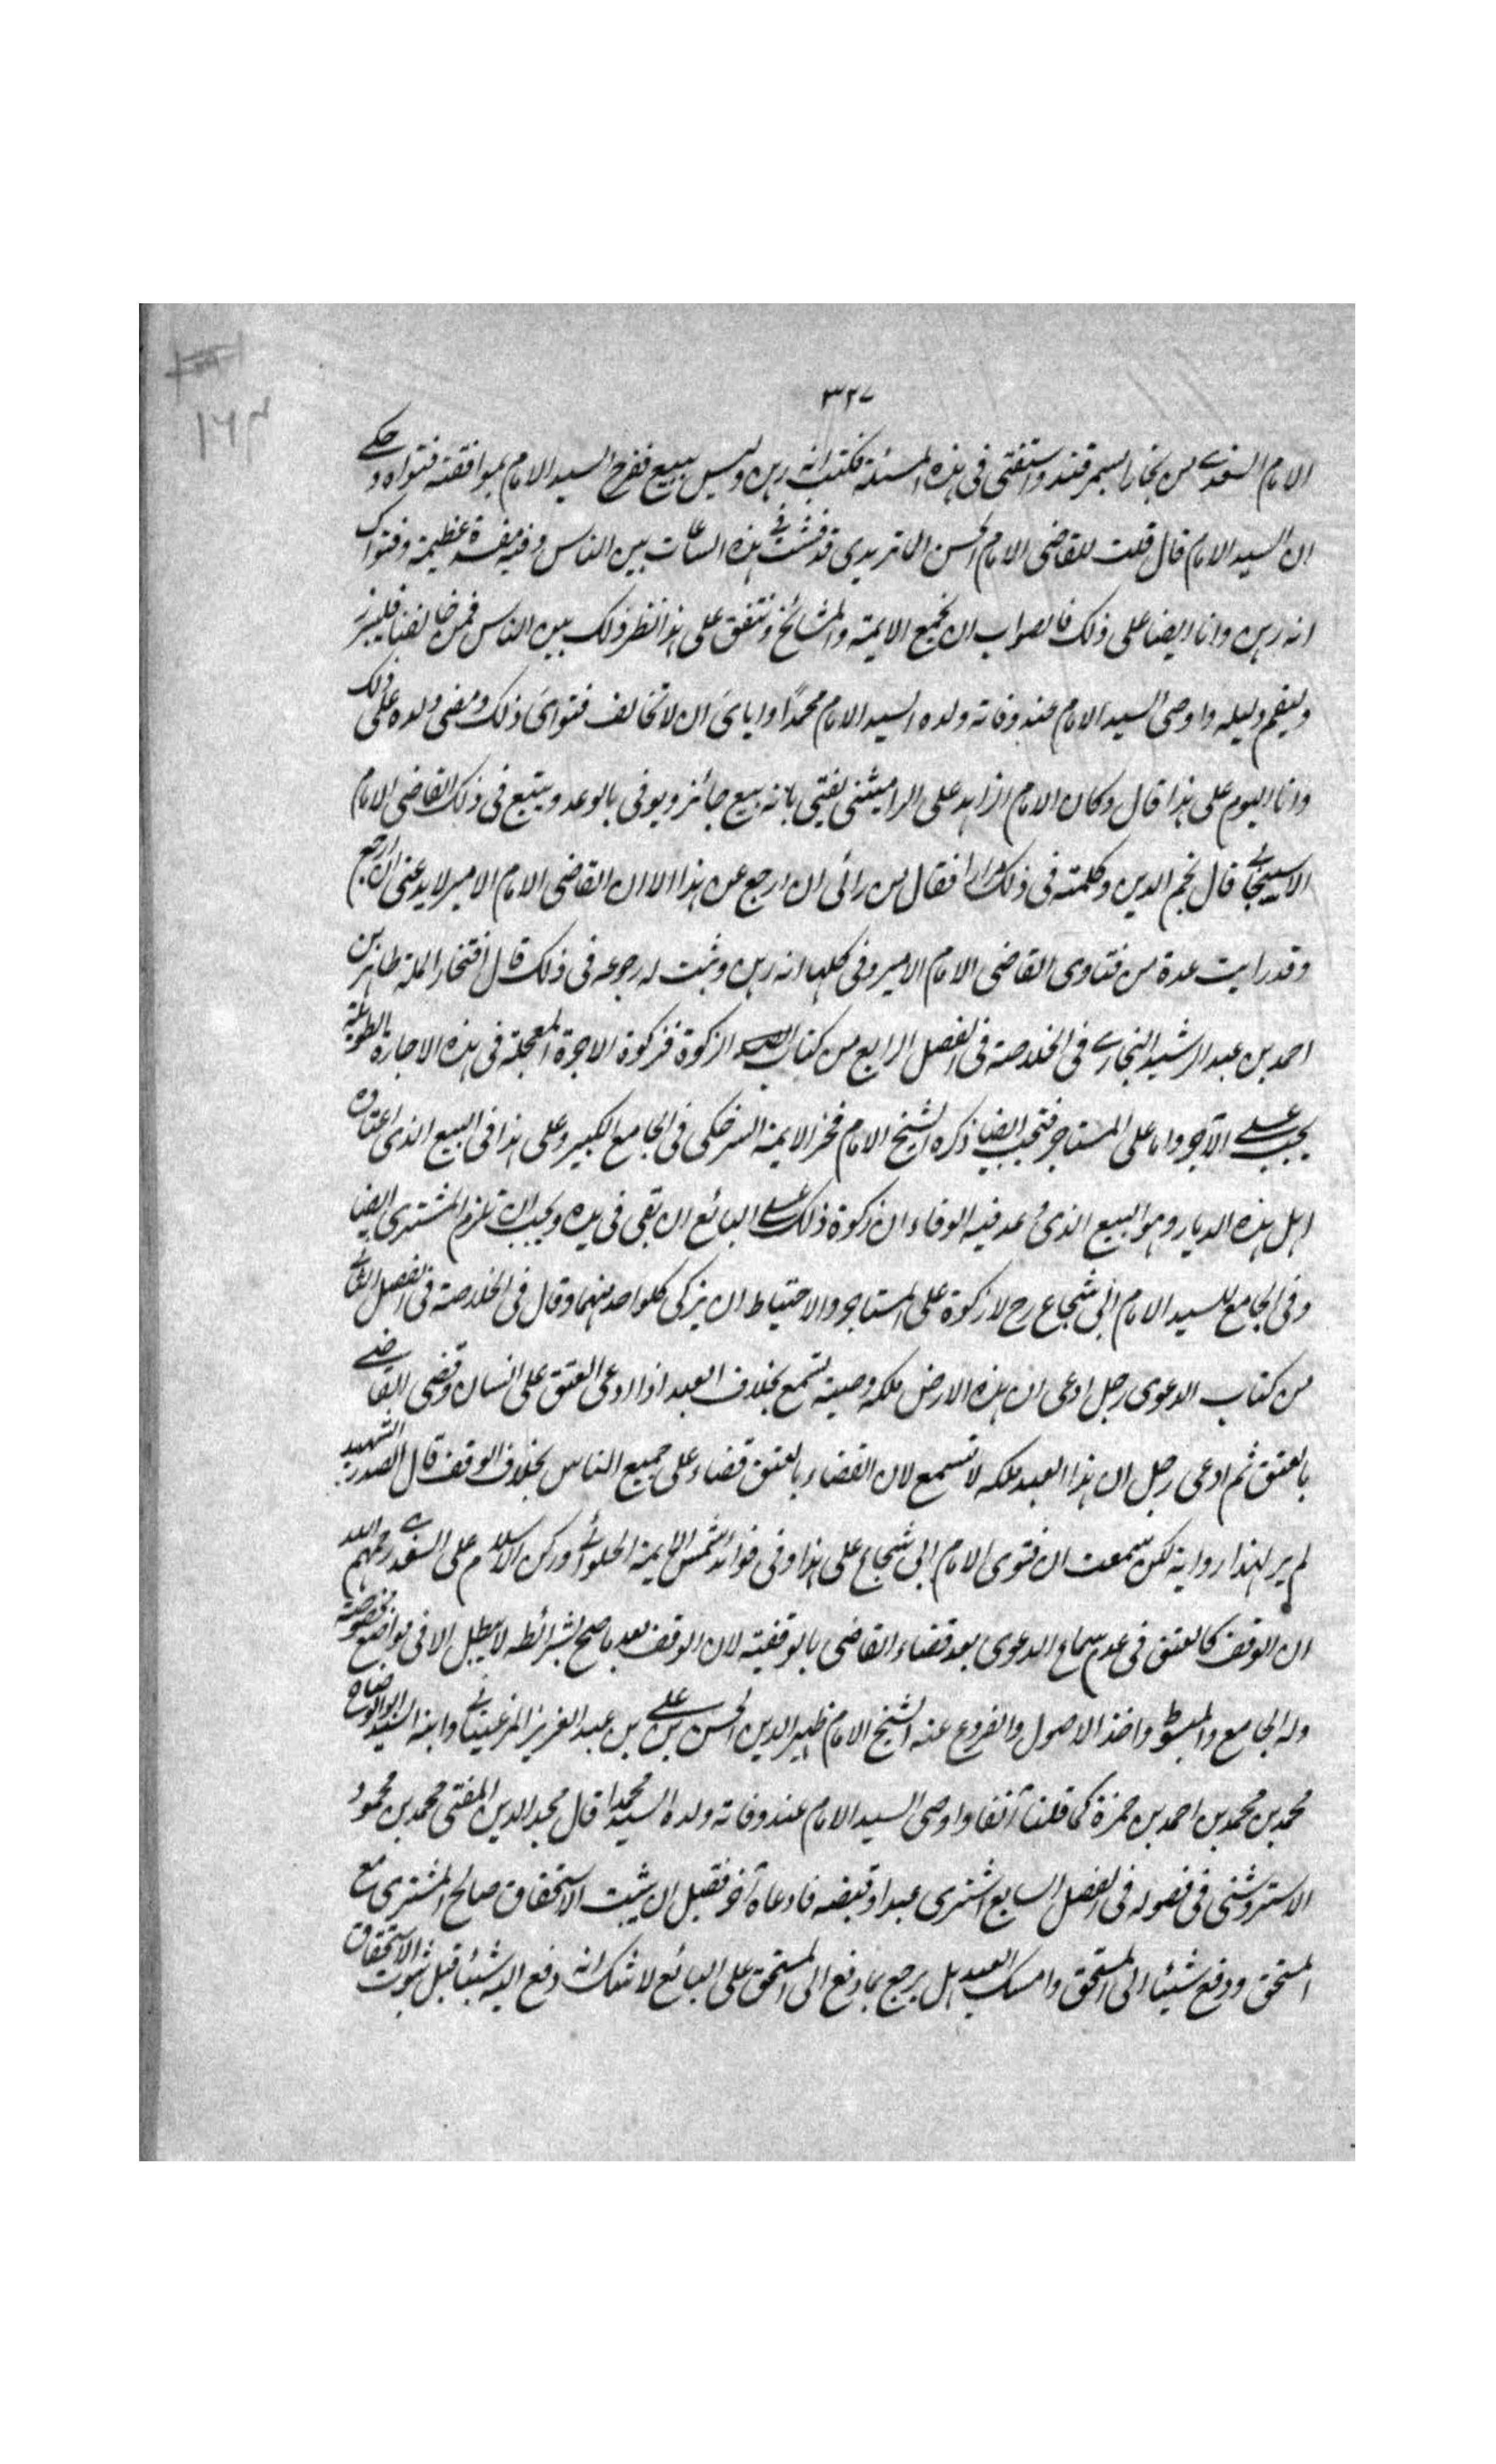 ٣٢٧
١٦٤
الامام السغدي من بخارا بسمرقند واستفتى فى هذه المسئلة فكتب انه رهن وليس ببيع ففرح السيد الامام بموافقته فتواه وحكى
ان السيد الامام قال قلت للقاضى الامام الحسن الماتريدى قد فشت فى هذه البياعات بين الناس وفيه مفسدة عظيمة وفتواك
انه رهن وانا ايضا على ذلك فالصواب ان نجمع الايمة والمشائخ ونتفق على هذا نظهر ذلك بين الناس فمن خالفنا فليبرز
وليقم دليله واوصى السيد الامام عند وفاته ولده السيد الامام محمدًا واياى ان لا تخالف فتواى ذلك ومضى ولده على ذلك
وانا اليوم على هذا قال وكان الامام الزاهد على الراميثنى يفتى بانه بيع جائز ويوفى بالوعد ويتبع فى ذلك القاضى الامام
الاسبيجابى قال نجم الدين وكلمته فى ذلك مرارا فقال من رائى ان ارجع عن هذا الا ان القاضى الامام الامير لا يدعنى ان ارجع
وقد رايت عدة من فتاوى القاضى الامام الامير وفى كلها انه رهن وثبت له رجوعه فى ذلك قال افتخار الملة طاهر بن
احمد بن عبد الرشيد البخارى فى الخلاصة فى الفصل الرابع من كتاب الزكوة فزكوة الاجرة المعجلة فى هذه الاجارة الطويلة
يجب على الآجر واما على المستاجر فتجب ايضا ذكره الشيخ الامام فخر الايمة السرخكى فى الجامع الكبير وعلى هذا فى البيع الذى اعتاده
اهل هذه الديار وهو البيع الذى وعد فيه الوفاء ان زكوة ذلك على البائع ان بقى فى يده ويجب ان تلزم المشترى ايضا
وفى الجامع للسيد الامام ابى شجاع رح لا زكوة على المستاجر والاحتياط ان يزكى كل واحد منهما وقال فى الخلاصة فى الفصل الثانى
من كتاب الدعوى رجل ادعى ان هذه الارض ملكه وصية تسمع بخلاف العبد اذا ادعى العتق على انسان وقضى القاضى
بالعتق ثم ادعى رجل ان هذا العبد ملكه لا تسمع لان القضاء بالعتق قضاء على جميع الناس بخلاف الوقف قال الصدر الشهيد
لم ير لهذا رواية لكن سمعت ان فتوى الامام ابى شجاع على هذا وفى فوائد شمس الايمة الحلوائى وركن الاسلام على السغدى رحمهم الله
ان الوقف كالعتق فى عدم سماع الدعوى بعد قضاء القاضى بالوقفية لان الوقف بعد ما صح بشرائطه لا يبطل الا فى مواضع مخصوصة
وله الجامع والمبسوط واخذ الاصول والفروع عنه الشيخ الامام ظهير الدين الحسن بن على بن عبد العزيز المرغينانى وابنه السيد ابو الوضاح
محمد بن محمد بن احمد بن حمزة كما قلنا آنفا واوصى السيد الامام عند وفاته ولده السيد محمدا قال مجد الدين المفتى محمد بن محمود
الاستروشنى فى فصوله فى الفصل السابع اشترى عبدا وقبضه فادعاه آخر فقبل ان يثبت الاستحقاق صالح المشترى مع
المستحق ودفع شيئا الى المستحق وامسك العبد هل يرجع بما دفع الى المستحق على البائع لا شك انه دفع اليه شيئا قبل ثبوت الاستحقاق